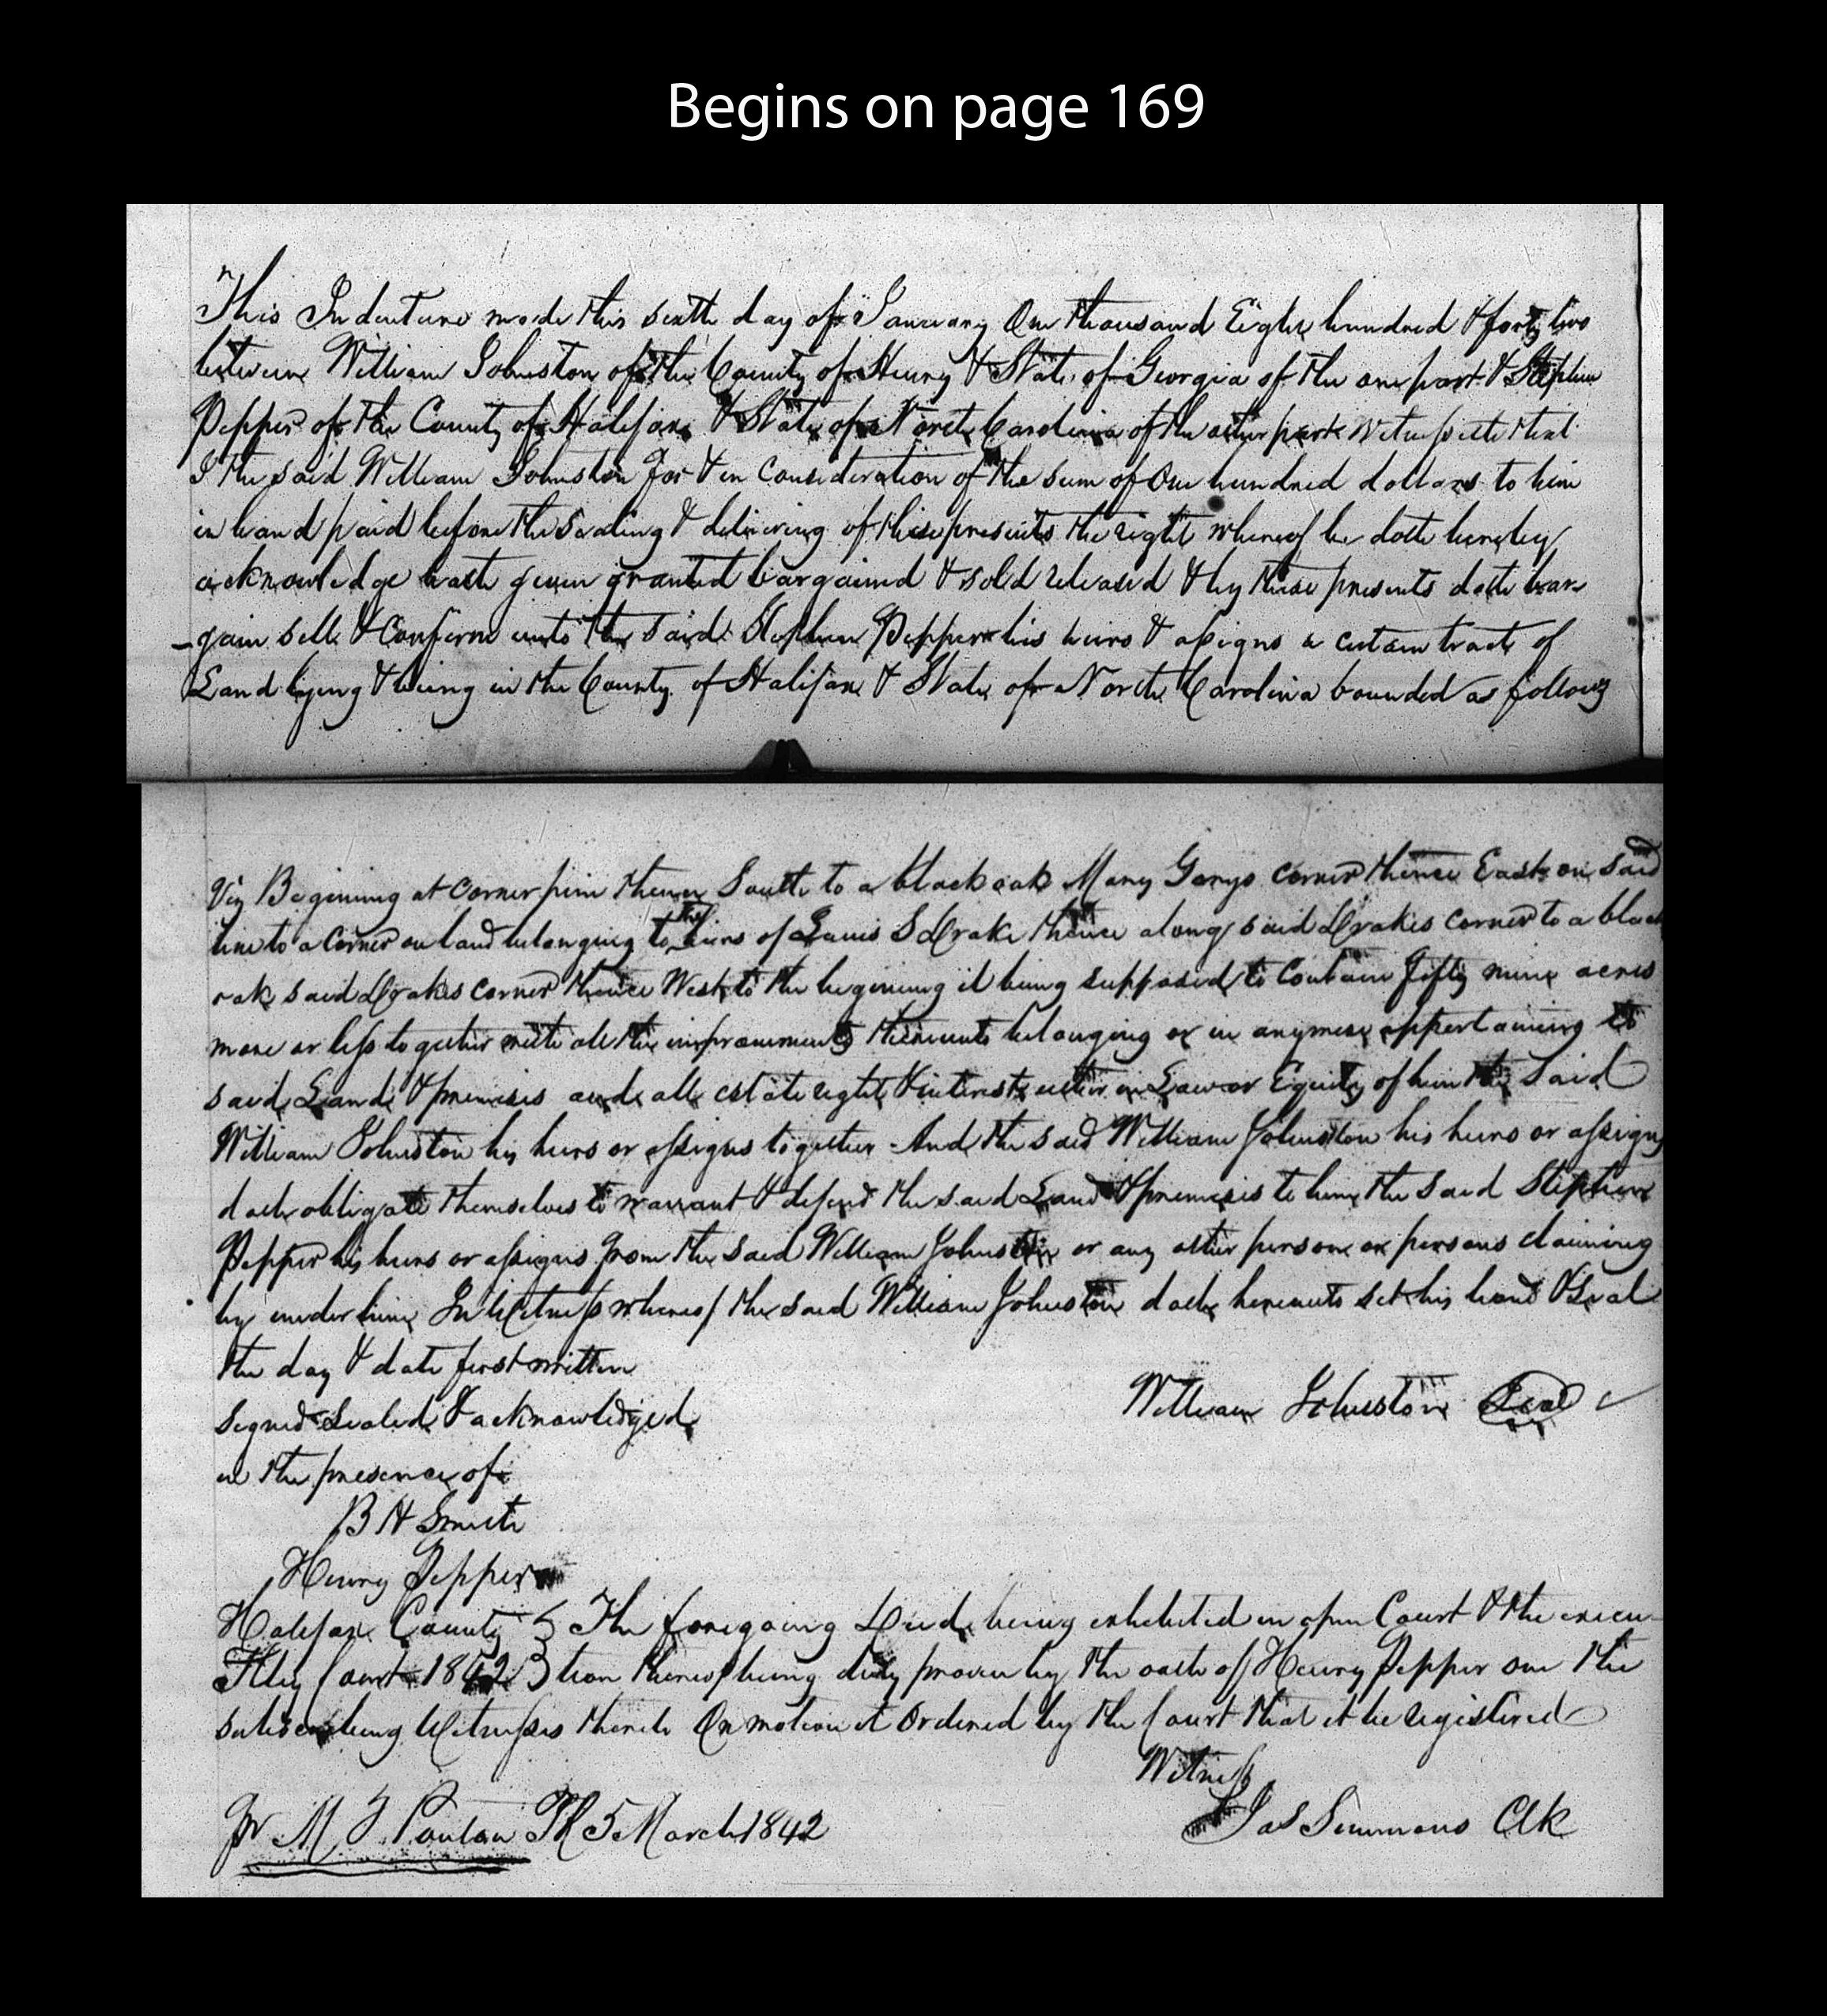 Begins on page 169
This Indenture made this sixth day of January One thousand Eight hundred & forty two
between William Johnston of the County of Henry & State of Georgia of the one part & Stephen
Pepper of the County of Halifax & State of North Carolina of the other part Witnesseth that
I the said William Johnston for & in consideration of the sum of One hundred dollars to him
in hand paid before the Sealing & delivering of these presents the right whereof he doth hereby
acknowledge hath given granted bargained & sold released & by these presents doth bar-
-gain sell & Confirm unto the said Stephen Pepper his heirs & assigns a certain tract of
Land lying & being in the County of Halifax & State of North Carolina bounded as follows
Viz Begining at corner pine thence South to a black oak Mary Garys corner thence East on said
line to a corner on land belonging to the heirs of Lewis S Drake thence along said Drakes corner to a black
oak said Drakes corner thence West to the begining it being supposed to Contain fifty nine acres
more or less together with all the improvements thereunto belonging or in anywise appertaining to
said Land & premises and all estate right & interest either in Law or Equity of him the said
William Johnston his heirs or assigns together And the said William Johnston his heirs or assigns
doth obligate themselves to warrant & defend the said Land & premises to him the said Stephen
Pepper his heirs or assigns from the said William Johnston or any other person or persons claiming
by under him In Witness whereof the said William Johnston doth hereunto set his hand & Seal
the day & date first written
Signed Sealed & acknowledged
William Johnston Seal
in the presence of
B H Smith
Henry Pepper
Halifax County } The foregoing Deed being exhibited in open Court & the execu-
Feby Court 1842 } tion thereof being duly proven by the oath of Henry Pepper one the
subscribing Witnesses thereto On motion it Ordered by the Court that it be registered
Witness
pr M. Ponton PR 5 March 1842
Jas Simmons Clk